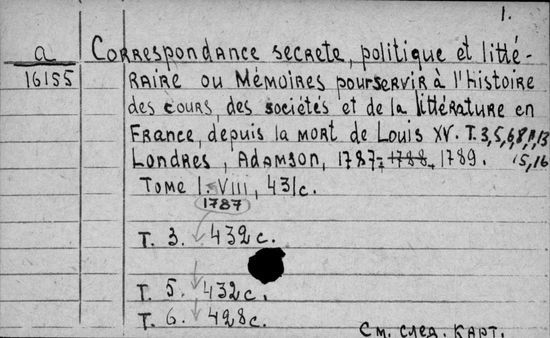 1.
а
16155
Correspondance secrete, politique et litté-
raire ou Mémoires pourservir à l'histoire
des cours, des sociétés et de la littérature en
France, depuis la mort de Louis XV. T. 3,5,6,8,11,13
Londres, Adamson, 1787-1788, 1789. 15,16
Tome I. VIII, 431c.
1787
T. 3. 432c.
T. 5. 432c.
T. 6. 428c.
См. след. карт.